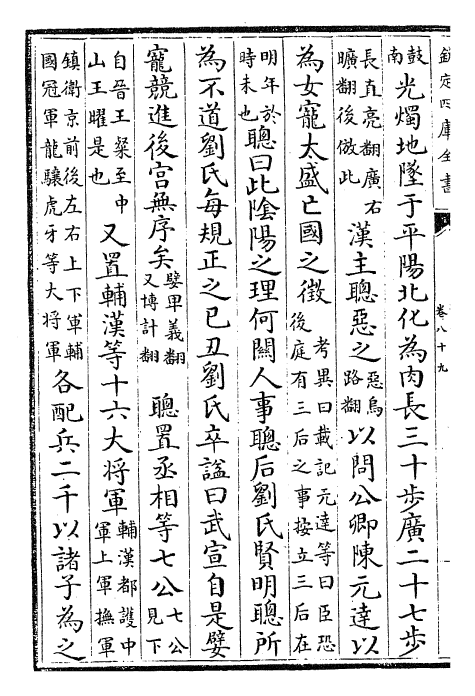 欽定四庫全書
卷八十九
鼓南光燭地墜于平陽北化為肉長三十步廣二十七步
長直亮翻廣右曠翻後倣此漢主聰惡之惡烏路翻以問公卿陳元達以
為女寵太盛亡國之徵考異曰載記元達等曰臣恐後庭有三后之事按立三后在
明年於時未也聰曰此隂陽之理何關人事聰后劉氏賢明聰所
為不道劉氏每規正之己丑劉氏卒諡曰武宣自是嬖
寵競進後宮無序矣嬖卑義翻又博計翻聰置丞相等七公七公見下
自晉王粲至中山王曜是也又置輔漢等十六大將軍輔漢都護中軍上軍撫軍
鎮衛京前後左右上下軍輔國冠軍龍驤虎牙等大將軍各配兵二千以諸子為之